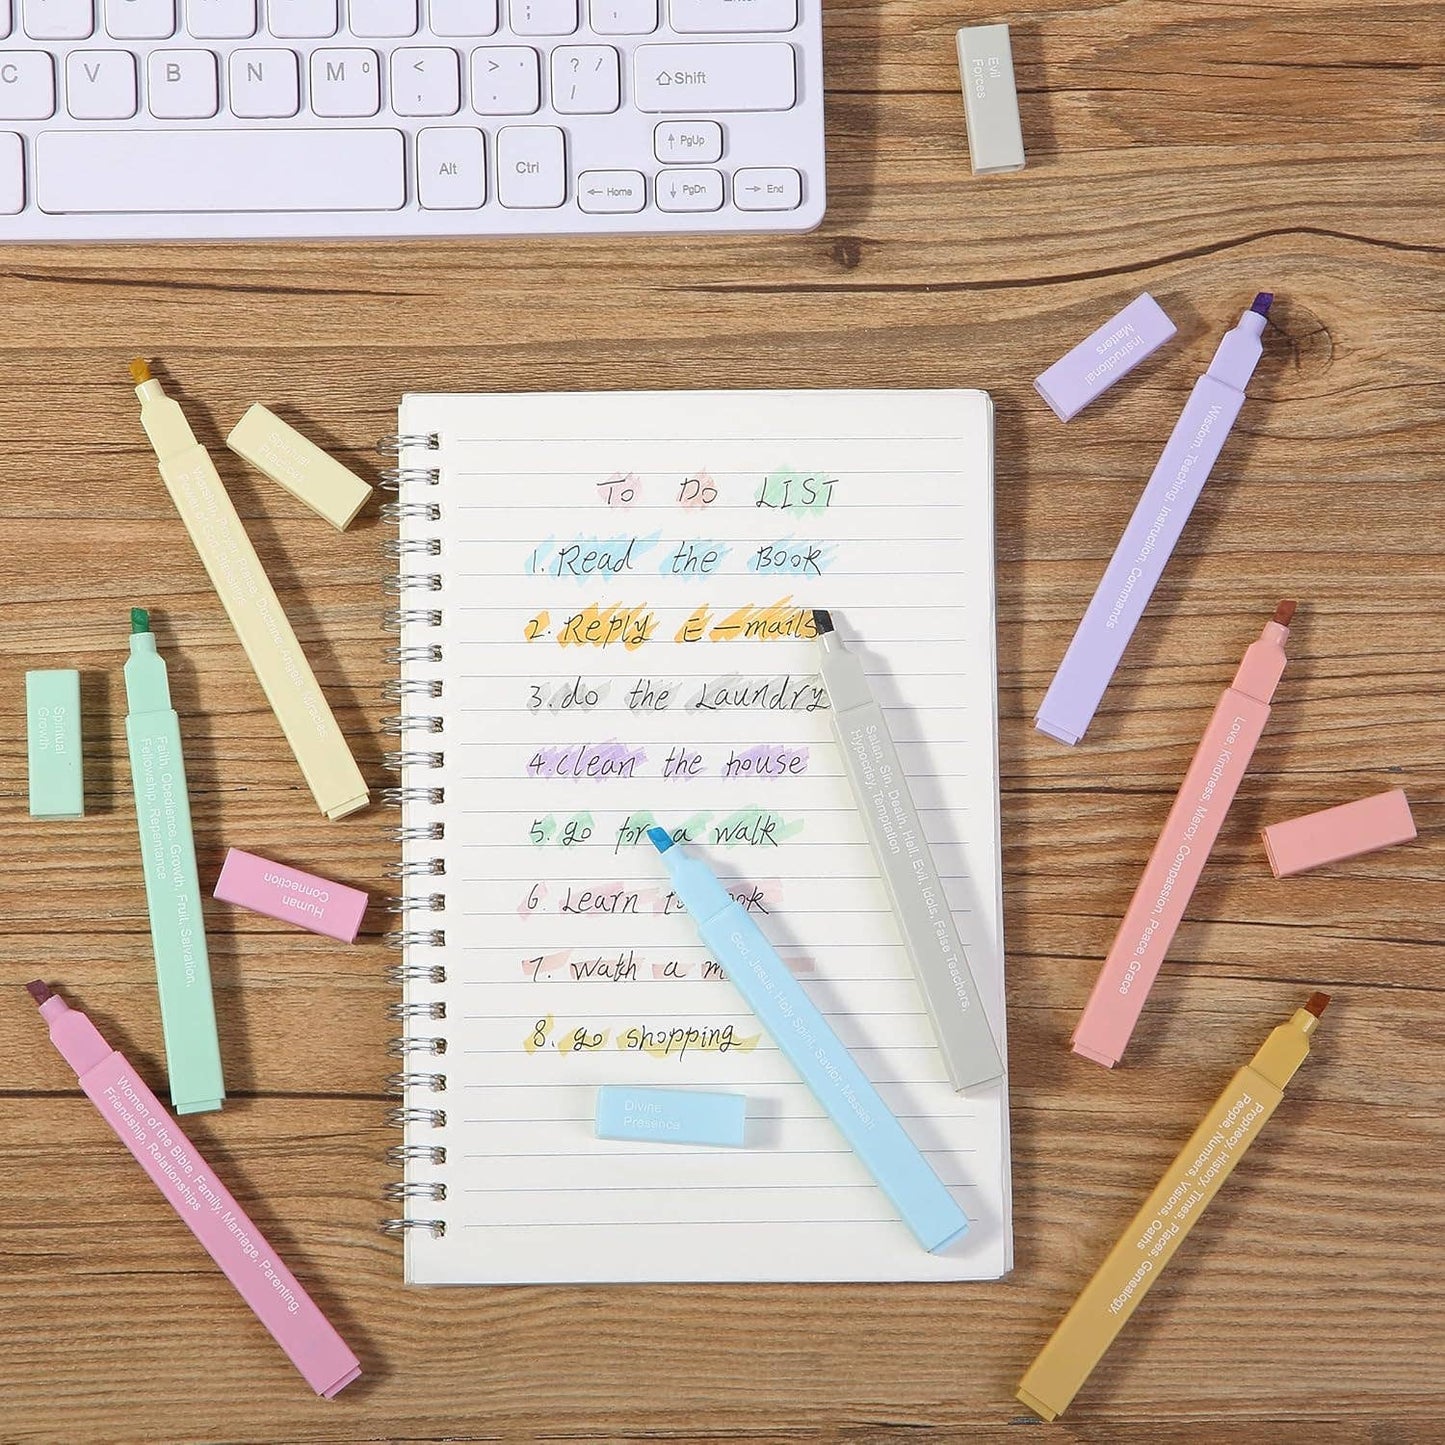 Enter
; :
C
V
B
N
M 0
< ,
> .
? / /
Shift
Alt
Ctrl
PgUp
Home
PgDn
End
Evil
Forces
Instructional
Matters
Wisdom, Teaching, Instruction, Commands
Spiritual
Practices
TO DO LIST
1. Read the Book
2. Reply E-mails
3. do the Laundry
4. clean the house
5. go for a walk
6. Learn to
7. a
8. go shopping
Satan, Sin, Death, Hell, Evil, Idols, False Teachers,
Hypocrisy, Temptation
God, Jesus, Holy Spirit, Savior, Messiah
Divine
Presence
Spiritual
Growth
Faith, Obedience, Growth, Fruit, Salvation,
Fellowship, Repentance
Human
Connection
Women of the Bible, Family, Marriage, Parenting,
Friendship, Relationships
Love, Kindness, Mercy, Compassion, Peace, Grace
Prophecy, History, Times, Places, Genealogy,
People, Numbers, Visions, Oaths